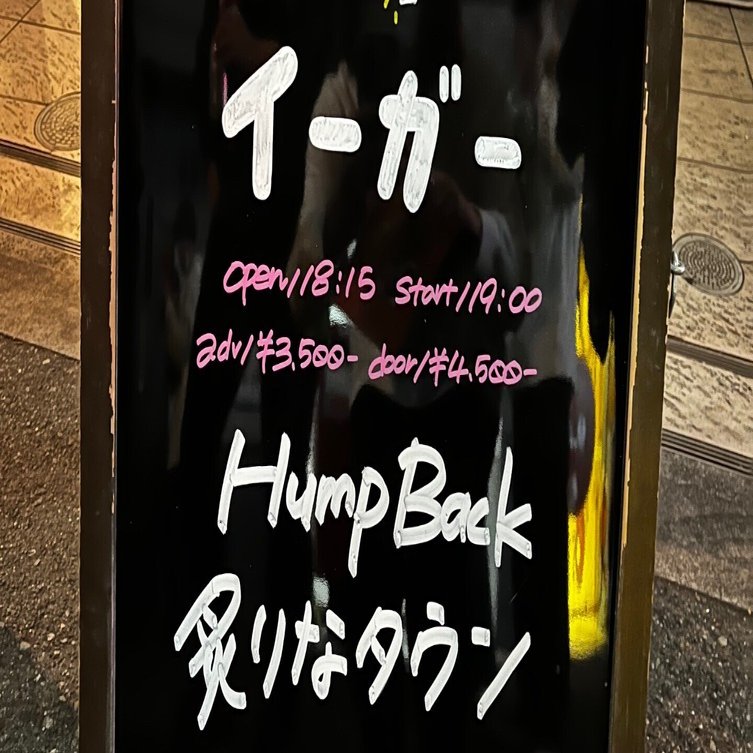 イーガー
open/18:15 start/19:00
adv/¥3,500- door/¥4,500-
Hump Back
炙りなタウン